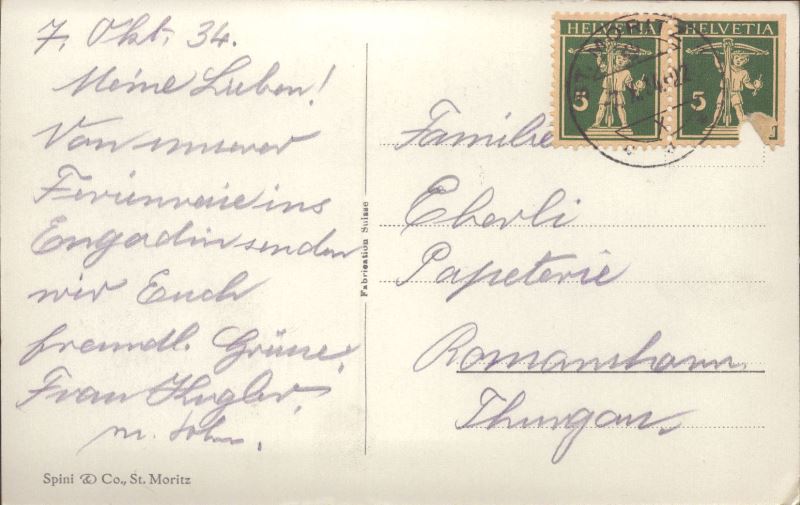 7. Okt. 34.
Meine Lieben!
Von unserer
Ferienreise ins
Engadin senden
wir Euch
freundl. Grüsse,
Frau Kugler,
m. Sohn.
Spini & Co., St. Moritz
Fabrication Suisse
HELVETIA HELVETIA
5 5
ST. MORITZ
Familie
Eberli
Papeterie
Romanshorn
Thurgau.